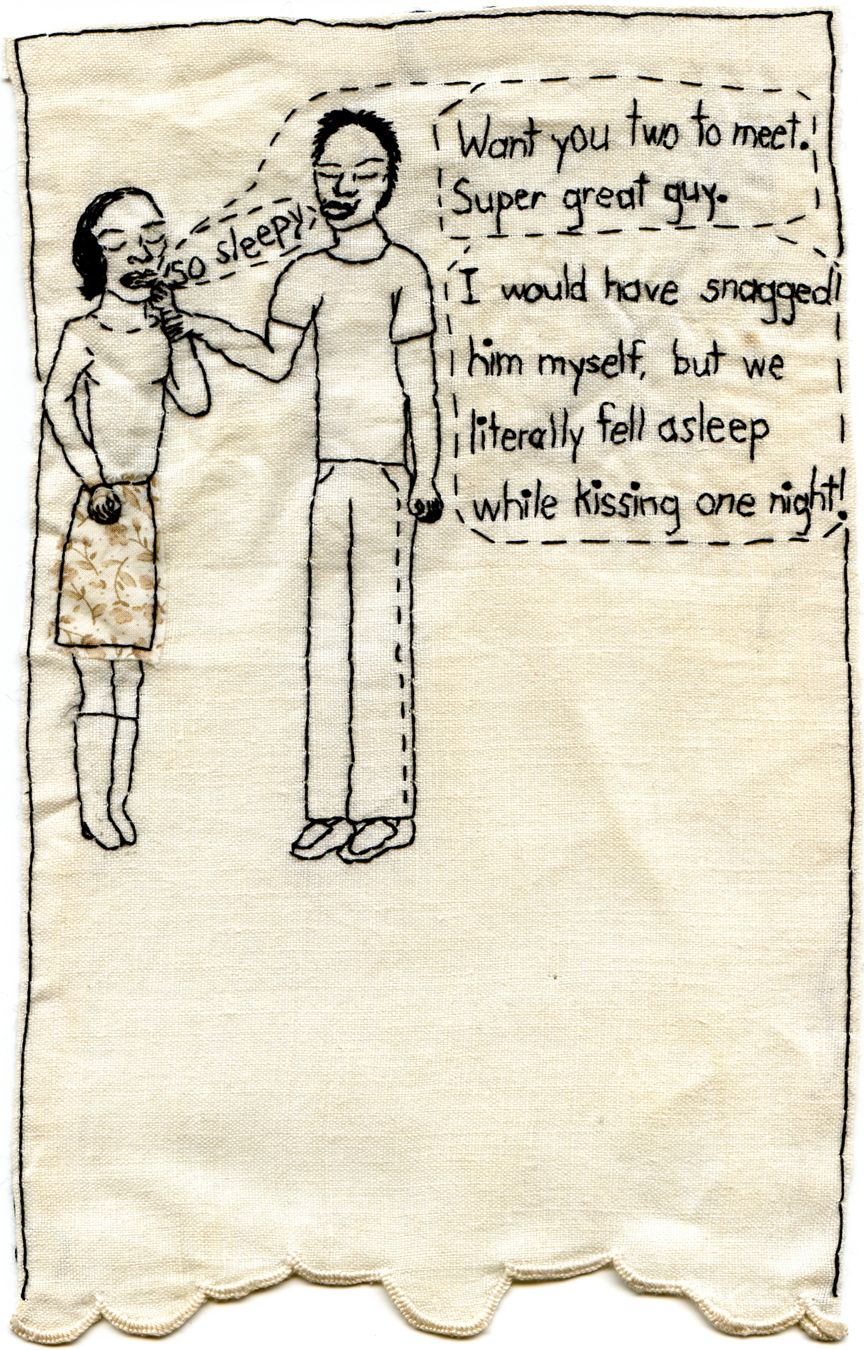 Want you two to meet.
Super great guy.
so sleepy
I would have snagged
him myself, but we
literally fell asleep
while kissing one night!